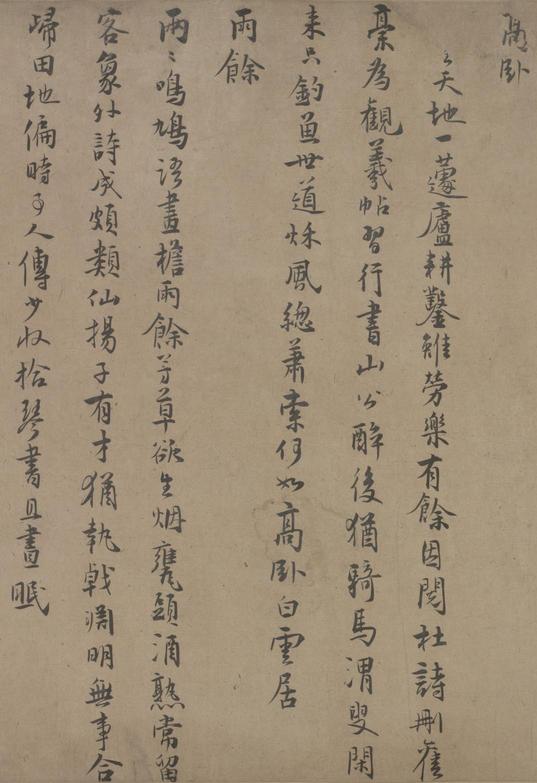 高卧
〻天地一蘧廬耕鑿雖勞樂有餘因閱杜詩刪舊
稾為觀羲帖習行書山公醉後猶騎馬渭叟閑
来只釣魚世道秌風總蕭索何如高卧白雲居
雨餘
兩〻鳴鳩語畫檐雨餘芳草欲生烟甕頭酒熟常留
客象外詩成頗類仙揚子有才猶執戟淵明無事合
歸田地偏時予人傳少收拾琴書且晝眠